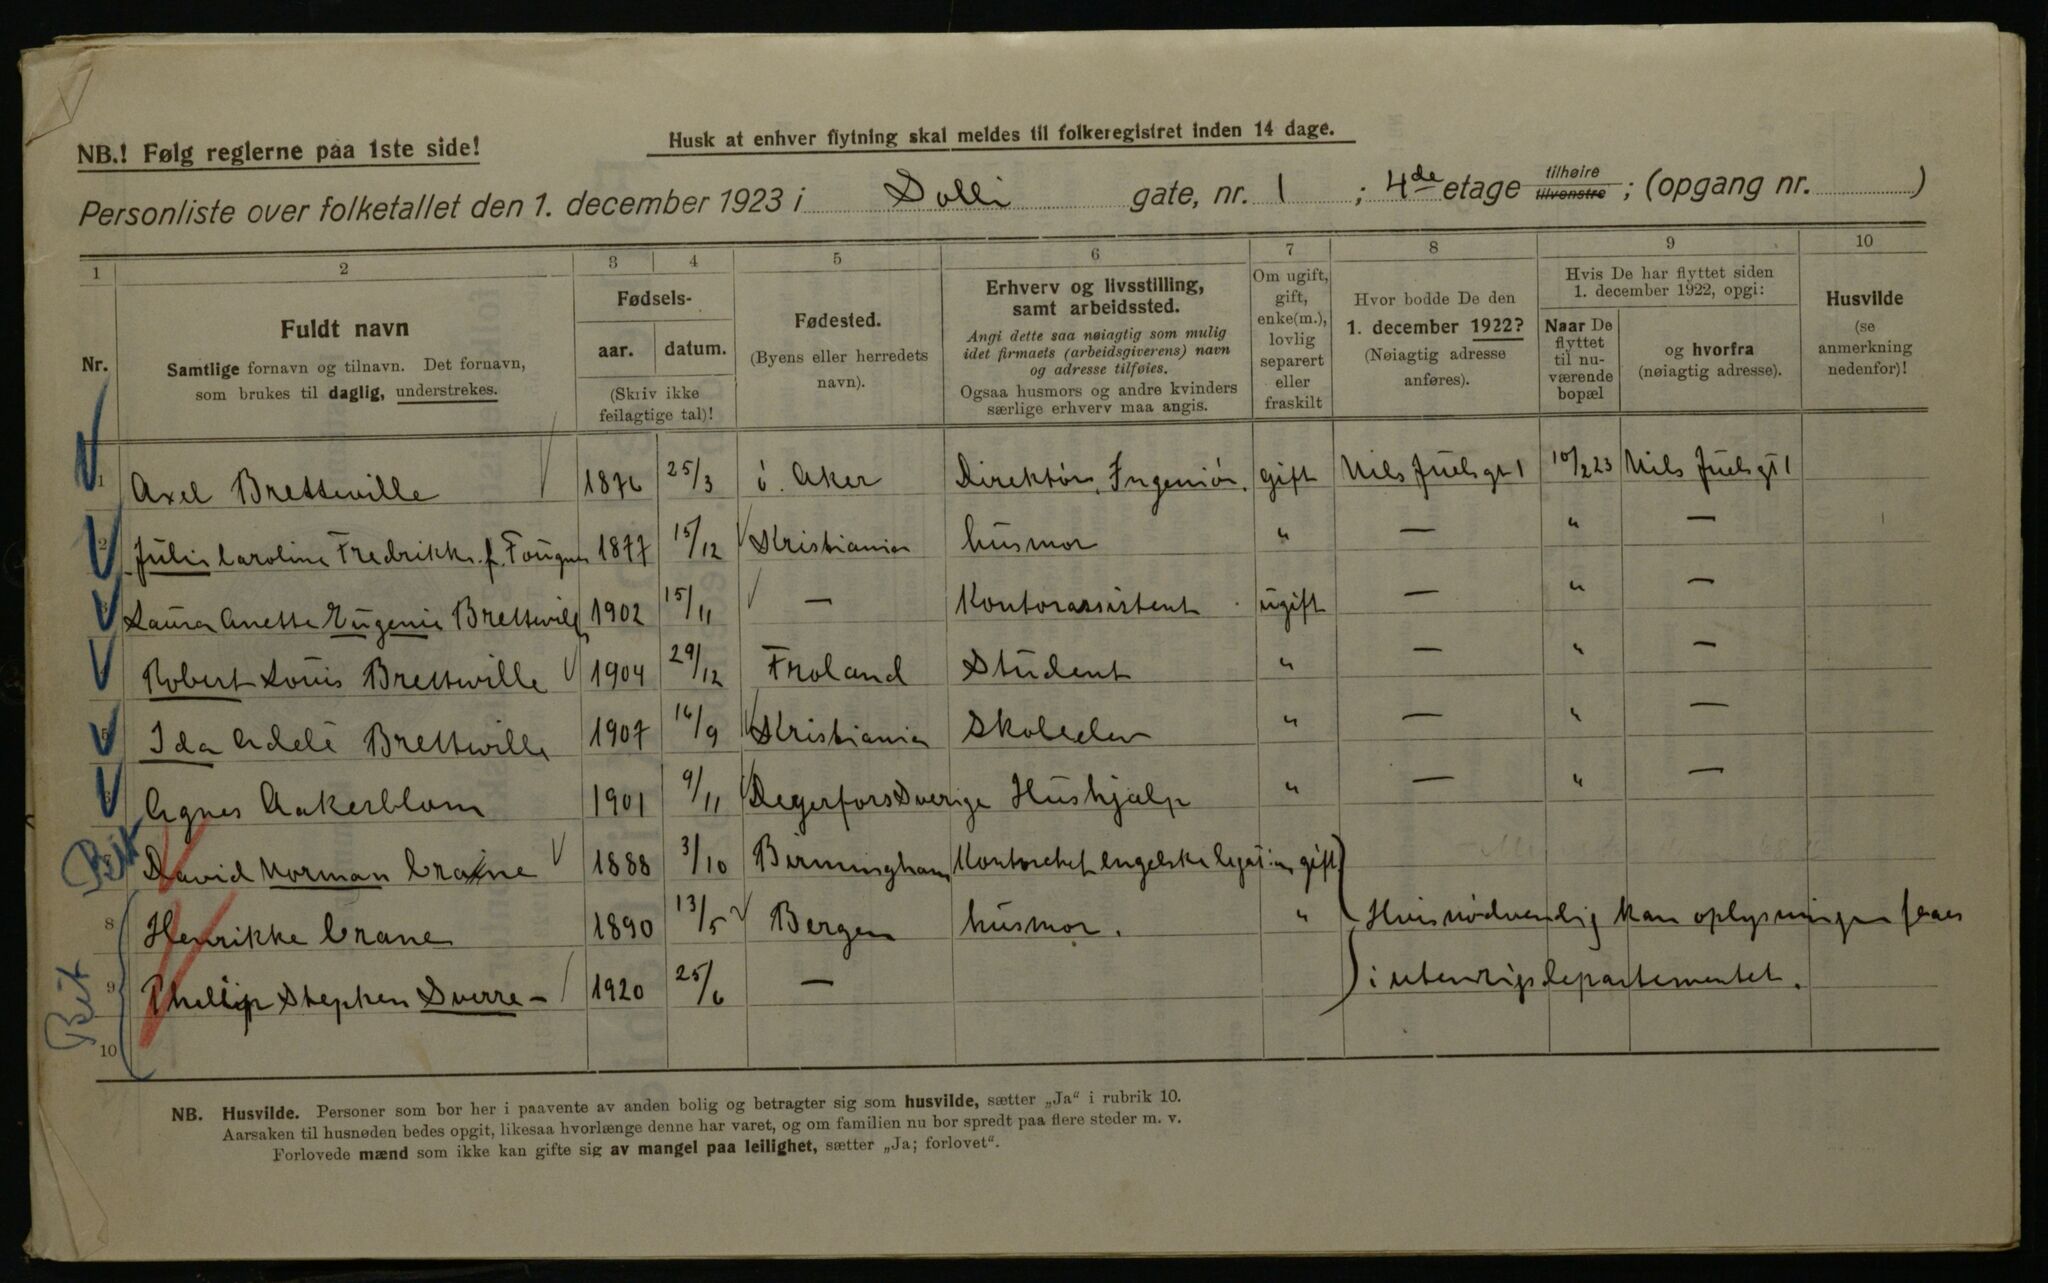 NB.! Følg reglerne paa 1ste side!
Husk at enhver flytning skal meldes til folkeregistret inden 14 dage.
Personliste over folketallet den 1. december 1923 i Solli gate, nr. 1 ; 4de etage tilhøire tilvenstre ; (opgang nr. )
1 2 3 4 5 6 7 8 9 10
Nr.
Fuldt navn
Samtlige fornavn og tilnavn. Det fornavn,
som brukes til daglig, understrekes.
Fødsels-
aar. datum.
(Skriv ikke
feilagtige tal)!
Fødested.
(Byens eller herredets
navn).
Erhverv og livsstilling,
samt arbeidssted.
Angi dette saa nøiagtig som mulig
idet firmaets (arbeidsgiverens) navn
og adresse tilføies.
Ogsaa husmors og andre kvinders
særlige erhverv maa angis.
Om ugift,
gift,
enke(m.),
lovlig
separert
eller
fraskilt
Hvor bodde De den
1. december 1922?
(Nøiagtig adresse
anføres).
Hvis De har flyttet siden
1. december 1922, opgi:
Naar De
flyttet
til nu-
værende
bopæl
og hvorfra
(nøiagtig adresse).
Husvilde
(se
anmerkning
nedenfor)!
1 Axel Bretteville 1876 25/3 ö. Aker Direktör, Ingeniör. gift Nils Juelsgt 1 10/2 23 Nils Juelsgt 1
2 Julie Caroline Fredrikke f. Fougner 1877 15/12 Kristiania husmor " — " —
Laura Anette Eugenie Bretteville 1902 15/11 — Kontorassistent ugift — " —
Robert Louis Bretteville 1904 29/12 Froland Student " — " —
5 Ida Adele Bretteville 1907 16/9 Kristiania Skoleelev " — " —
Agnes Aakerblom 1901 9/11 Degerfors Sverige Hushjælp " — " —
David Norman Crane 1888 3/10 Birmingham Kontorchef engelske legation gift
8 Henrikke Crane 1890 13/5 Bergen husmor. " Hvis nödvendig kan oplysninger faaes
9 Phillip Stephen Sverre — 1920 25/6 — i utenrigsdepartementet.
10
NB. Husvilde. Personer som bor her i paavente av anden bolig og betragter sig som husvilde, sætter „Ja“ i rubrik 10.
Aarsaken til husnøden bedes opgit, likesaa hvorlænge denne har varet, og om familien nu bor spredt paa flere steder m. v.
Forlovede mænd som ikke kan gifte sig av mangel paa leilighet, sætter „Ja; forlovet“.